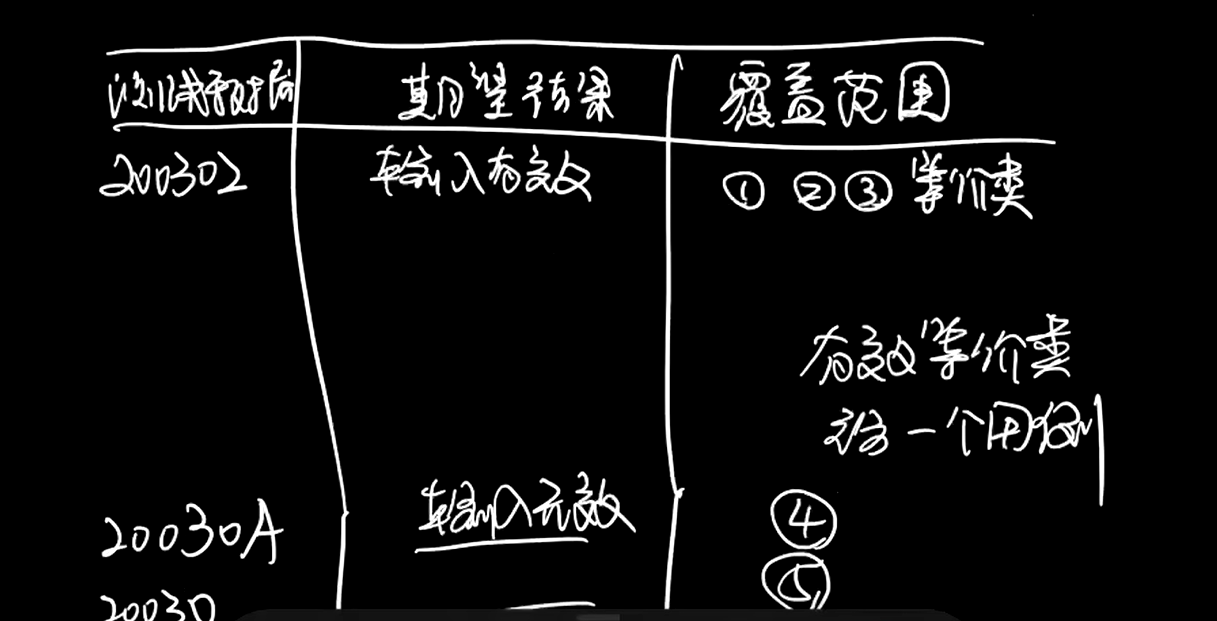 测试数据 期望结果 覆盖范围
200302 输入有效 ① ② ③ 等价类
有效等价类
设一个用例
20030A 输入无效 ④
20030 ⑤